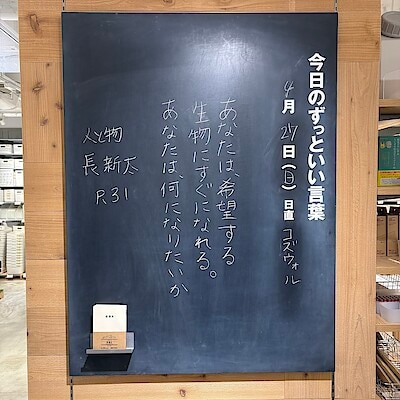 今日のずっといい言葉
4月27日(日)日直 コズウォル
あなたは、希望する
生物にすぐになれる。
あなたは、何になりたいか
人物
長新太
P.31